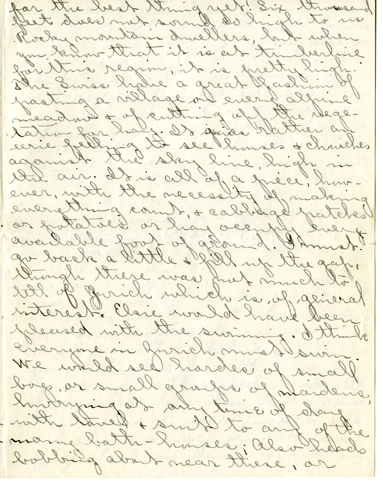 far the best thing yet. Six thousand
feet does not sound so high to us
Rocky mountain dwellers, but when
you know that it is at timberline
for this region, it is pretty high.
The Swiss have a great fashion of
pasting a village on every alpine
meadow & of cutting off the vege-
tation for hay. It gives rather an
eerie feeling to see houses & churches
against the sky line high in
the air. It is all of a piece, how-
ever, with the necessity of making
everything count, & cabbage patches
or potatoes or hay occupy every
available foot of ground. I must
go back a little & fill up the gap,
though there was not much to
tell of Zurich which is of general
interest. Elsie would have been
pleased with the swimming. I think
everyone in Zurich must swim.
We would see hordes of small
boys, or small groups of maidens,
hurrying at any time of day
with towel & suit to any of the
many bath-houses; Also heads
bobbing about near these, or